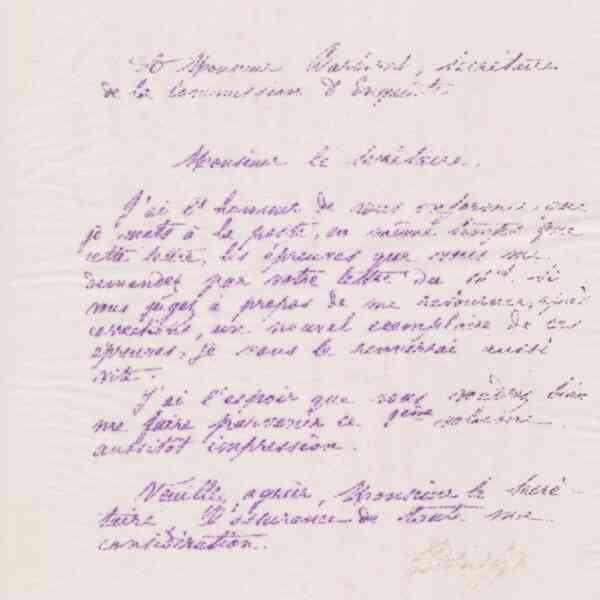 A Monsieur secrétaire
de la Commission d'Enquête.
Monsieur le secrétaire,
J'ai l'honneur de vous informer que
je mets à la poste, en même temps que
cette lettre, les épreuves que vous me
demandez par votre lettre du Si
vous jugez à propos de me retourner, après
corrections, un nouvel exemplaire de ces
épreuves, je vous le renverrai aussi
vite.
J'ai l'espoir que vous voudrez bien
me faire parvenir ce volume
aussitôt impression.
Veuillez agréer, Monsieur le Secré-
taire l'assurance de toute ma
considération.